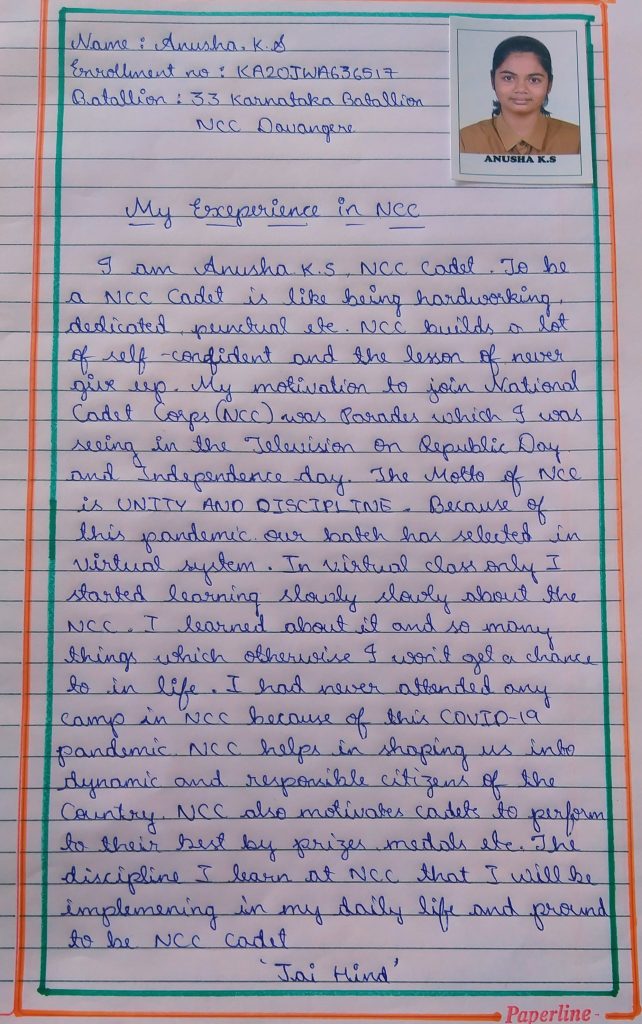 Name : Anusha. K.S
Enrollment no : KA20JWA636517
Batallion : 33 Karnataka Batallion
NCC Davangere
ANUSHA K.S
My Exeperience in NCC
I am Anusha K.S, NCC Cadet. To be
a NCC Cadet is like being hardworking,
dedicated, punctual etc. NCC builds a lot
of self-confident and the lesson of never
give up. My motivation to join National
Cadet Corps(NCC) was Parades which I was
seeing in the Television on Republic Day
and Independence day. The Motto of NCC
is UNITY AND DISCIPLINE. Because of
this pandemic our batch has selected in
virtual system. In virtual class only I
started learning slowly slowly about the
NCC. I learned about it and so many
things which otherwise I won't get a chance
to in life. I had never attended any
camp in NCC because of this COVID-19
pandemic. NCC helps in shaping us into
dynamic and responsible citizens of the
Country. NCC also motivates cadets to perform
to their best by prizes, medals etc. The
discipline I learn at NCC that I will be
implemening in my daily life and pround
to be NCC cadet
'Jai Hind'
Paperline